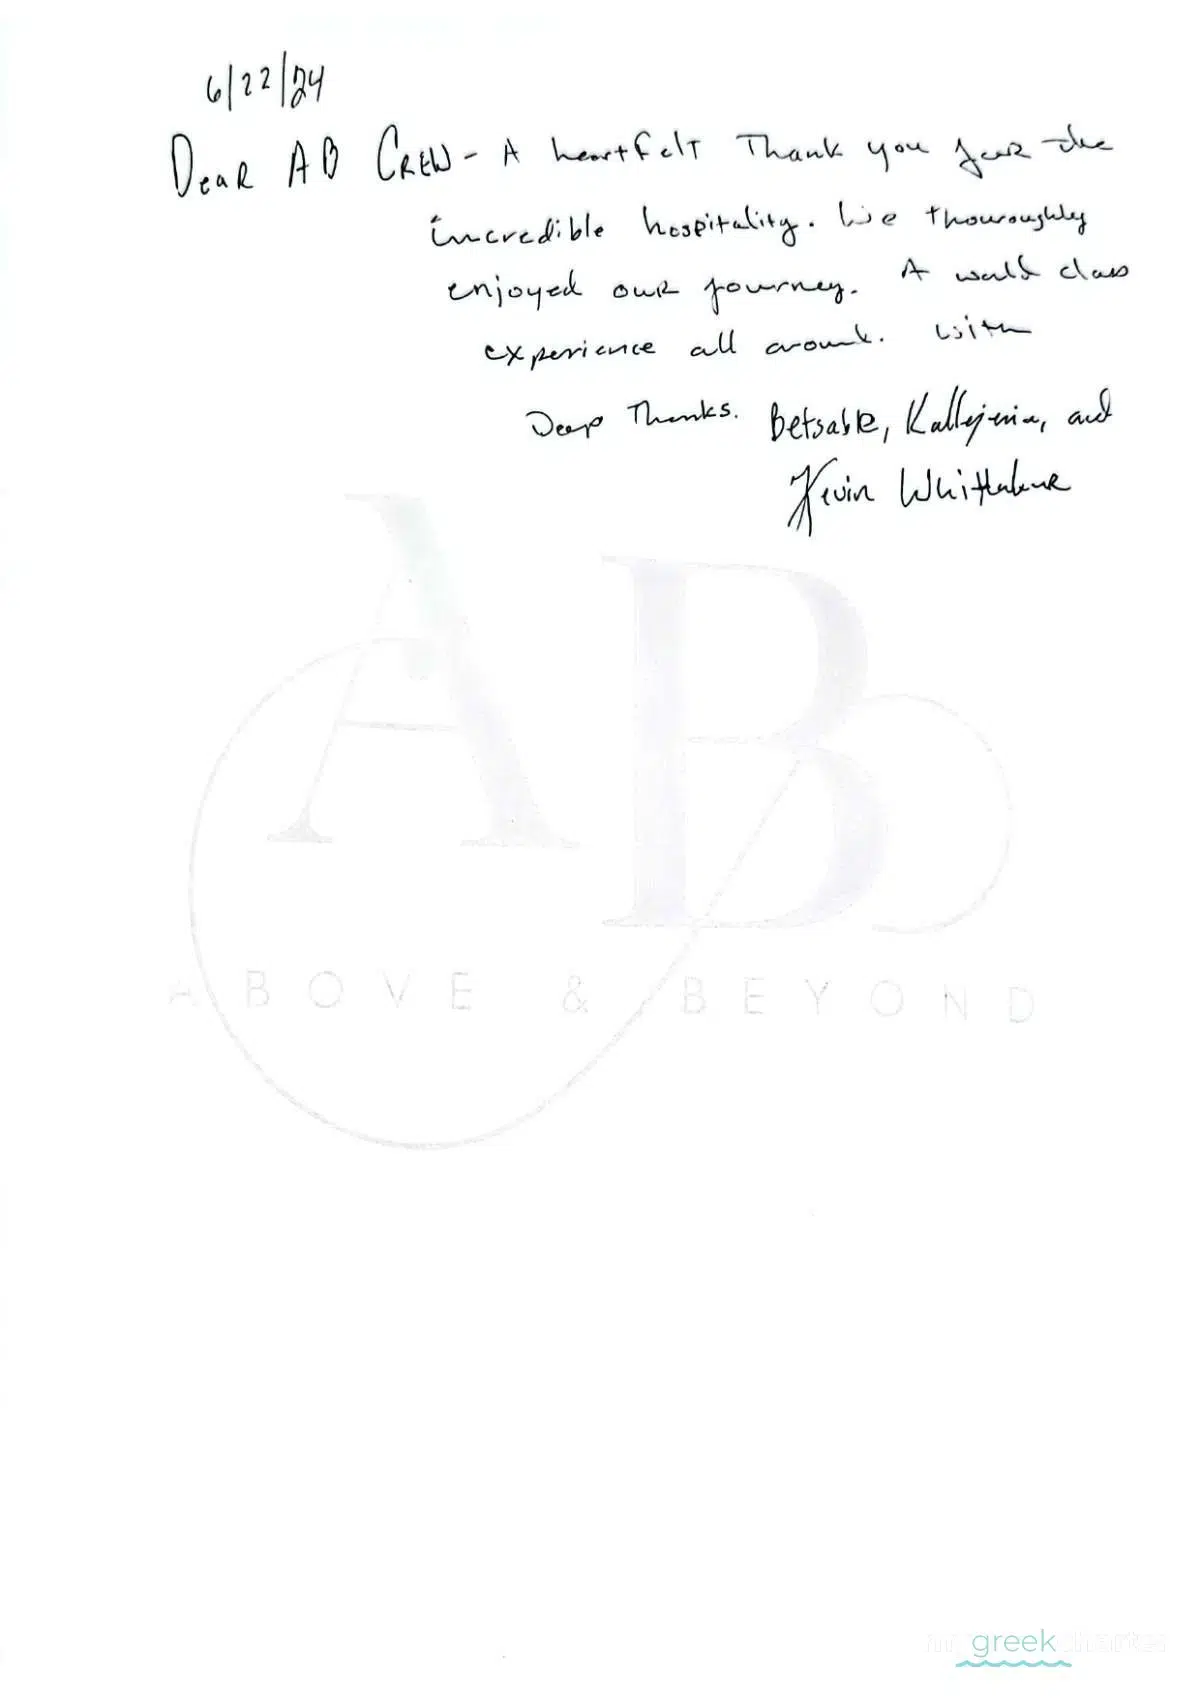 6/22/24
Dear AB Crew - A heartfelt Thank you for the
incredible hospitality. We thouroughly
enjoyed our journey. A world class
experience all around. With
Deep Thanks. Betsable, Kallijenia, and
Kevin Whittaker
AB
ABOVE & BEYOND
my greek charter